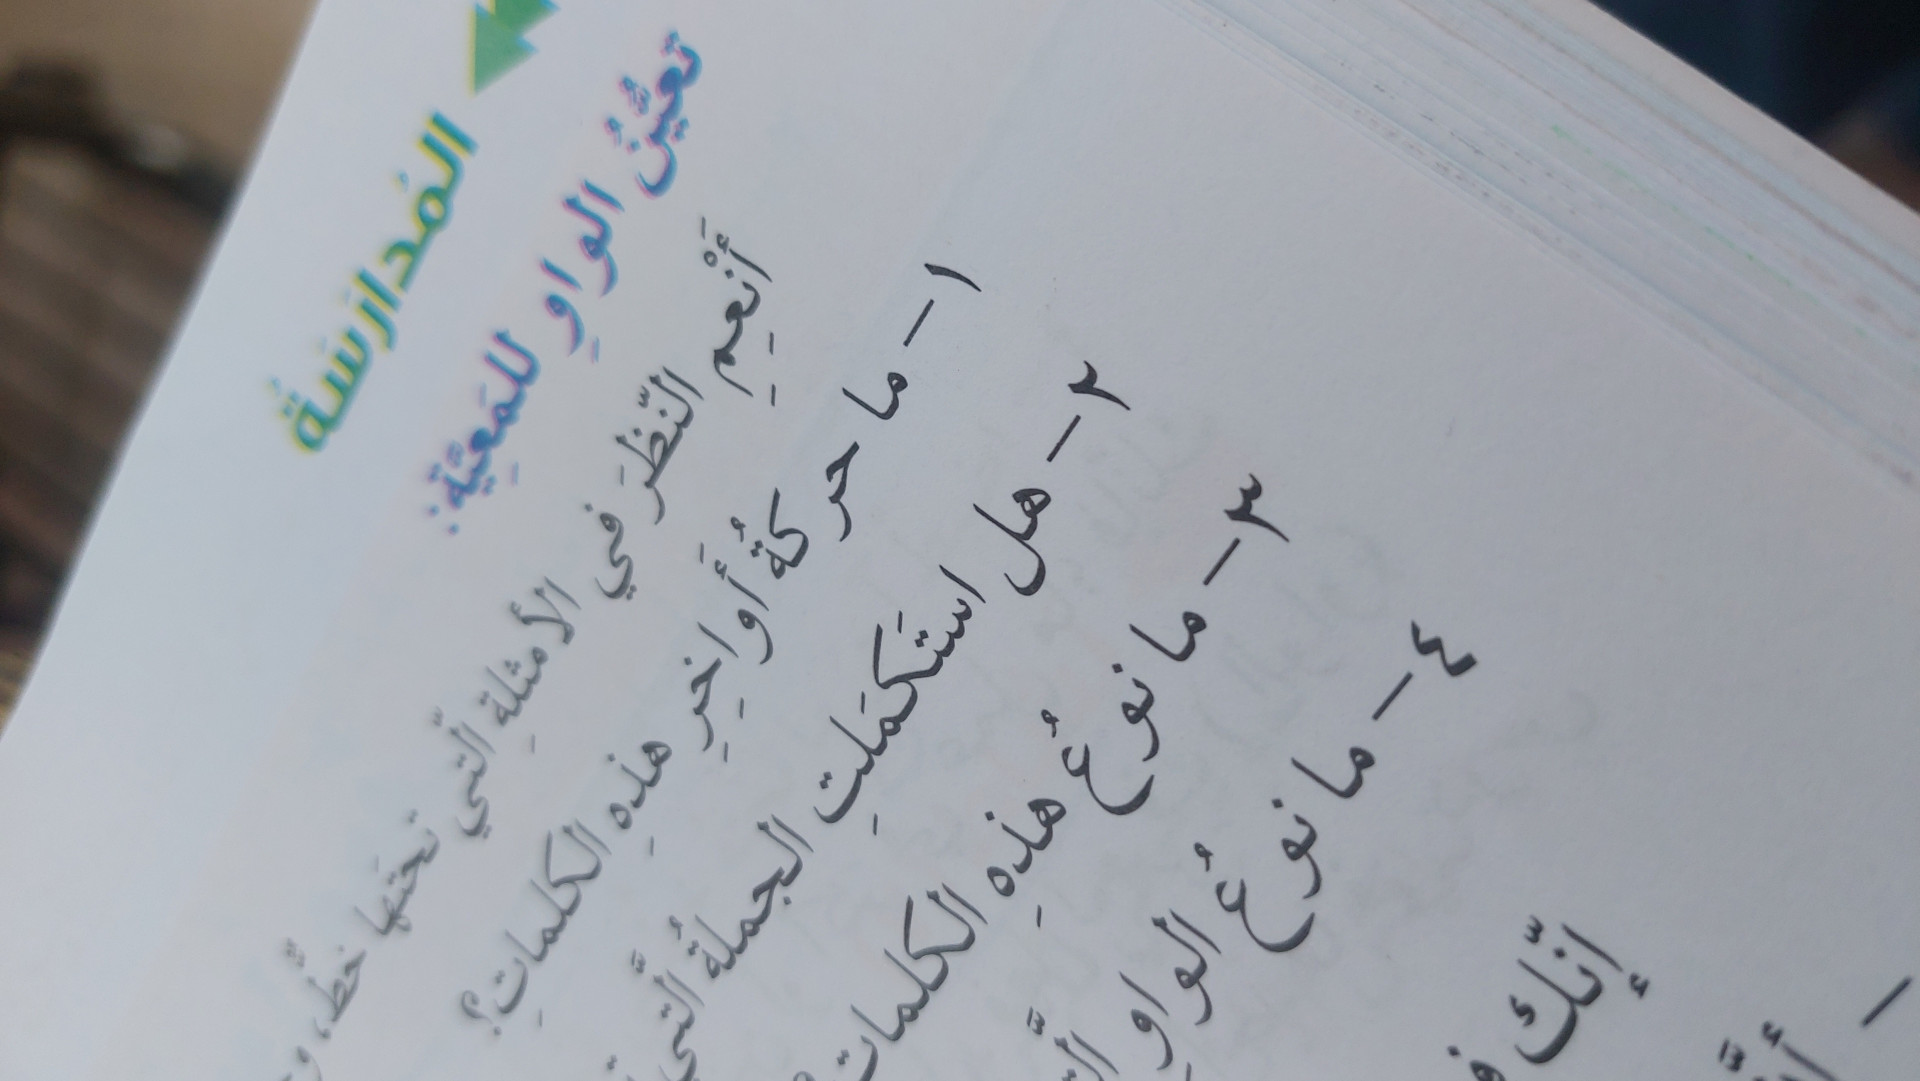 المُدارَسَةُ
تعيُّنُ الواوِ للمَعِيَّةِ:
أَنْعِمِ النّظَرَ في الأمثلةِ الّتي تحتَها خطٌّ، و
١- ما حركةُ أَواخِرِ هذِهِ الكلماتِ؟
٢- هل استَكمَلتِ الجملةُ الَّتي
٣- ما نوعُ هذِهِ الكلمات
٤- ما نوعُ الواوِ
إنّك
-